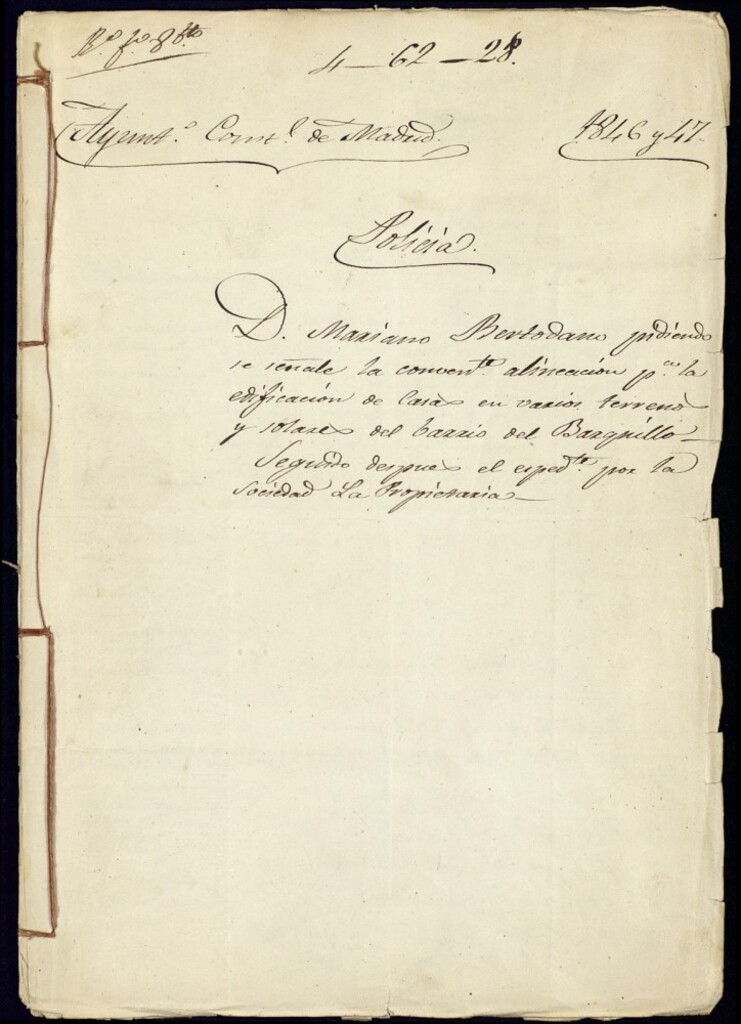 4-62-28.
Ayunt.º Const.l de Madrid.
1846 y 47.
Policia.
D. Mariano Bertodano pidiendo
se señale la conven.te alineacion p.a la
edificacion de Casas en varios terrenos
y solares del barrio del Barquillo-
Seguido despues el esped.te por la
Sociedad La Propietaria-